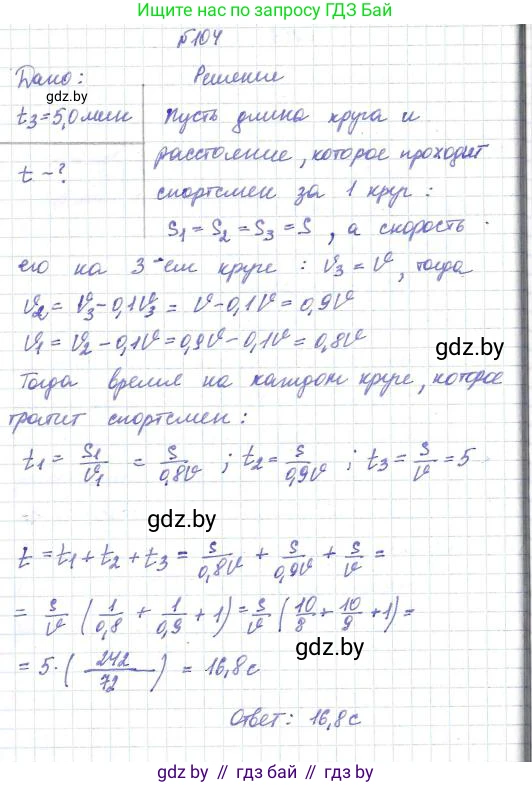 Ищите ответ по запросу ГДЗ Бай
№104
Дано:
gdz.by
Решение
t₃=5,0 мин
t - ?
Пусть длина круга и
расстояние, которое проходит
спортсмен за 1 круг:
S₁ = S₂ = S₃ = S, а скорость
его на 3-ем круге: v₃ = v, тогда
v₂ = v₃ - 0,1v₃ = v - 0,1v = 0,9v
v₁ = v₂ - 0,1v = 0,9v - 0,1v = 0,8v
gdz.by
Тогда время на каждом круге, которое
тратит спортсмен:
t₁ = S₁/v₁ = S/0,8v ; t₂ = S/0,9v ; t₃ = S/v = 5
gdz.by
t = t₁ + t₂ + t₃ = S/0,8v + S/0,9v + S/v =
= S/v (1/0,8 + 1/0,9 + 1) = S/v (10/8 + 10/9 + 1) =
gdz.by
= 5 · (242/72) = 16,8 с
Ответ: 16,8 с
gdz.by // гдз бай // gdz.by // гдз бай // gdz.by